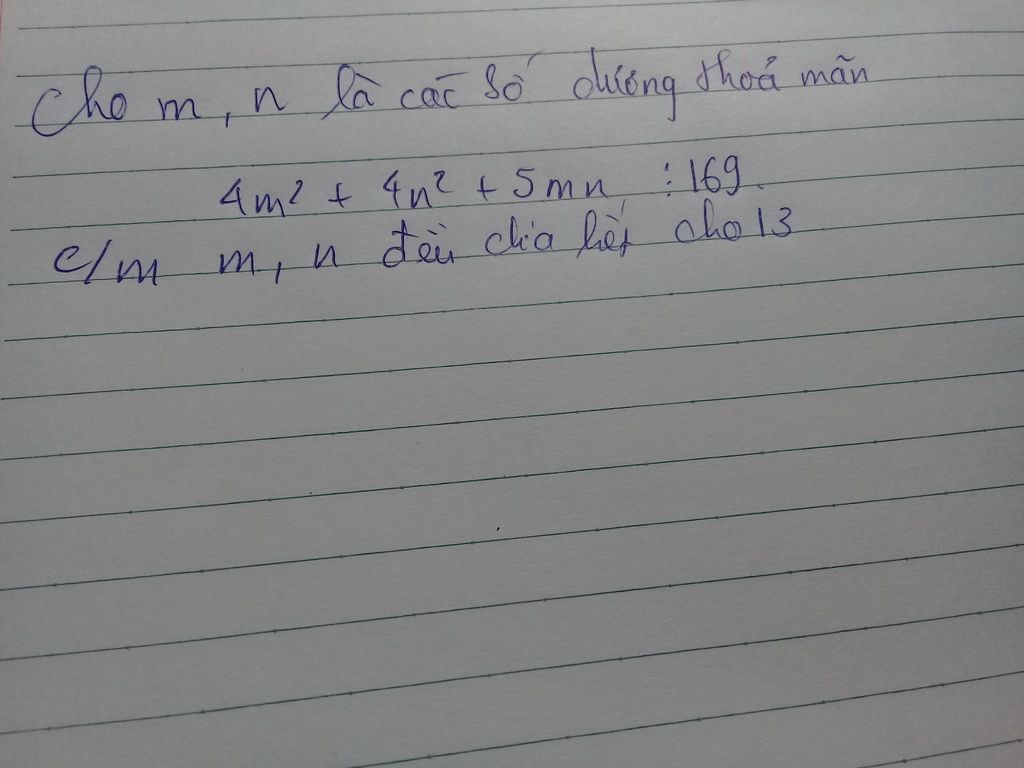 Cho m, n là các số dương thoả mãn
4m² + 4n² + 5mn ⋮ 169.
c/m m, n đều chia hết cho 13